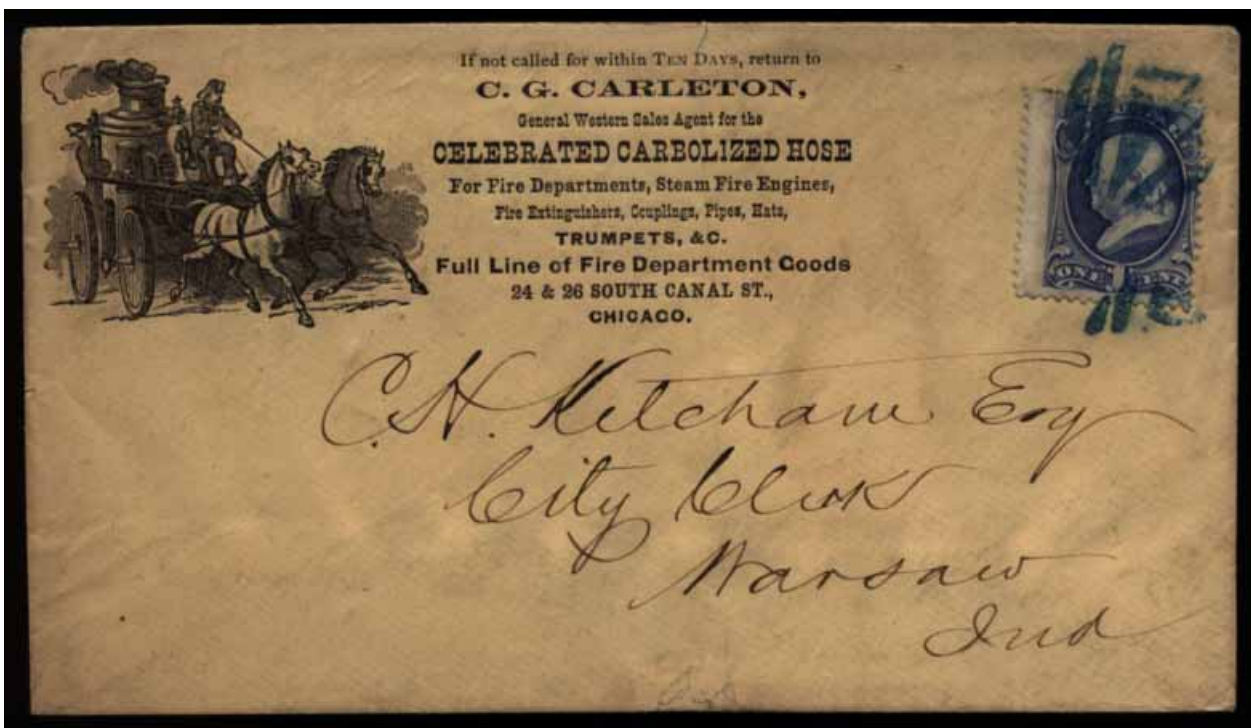 If not called for within TEN DAYS, return to
C. G. CARLETON,
General Western Sales Agent for the
CELEBRATED CARBOLIZED HOSE
For Fire Departments, Steam Fire Engines,
Fire Extinguishers, Couplings, Pipes, Hats,
TRUMPETS, &C.
Full Line of Fire Department Goods
24 & 26 SOUTH CANAL ST.,
CHICAGO.
ONE CENT
C. H. Ketcham Esq
City Clerk
Warsaw
Ind